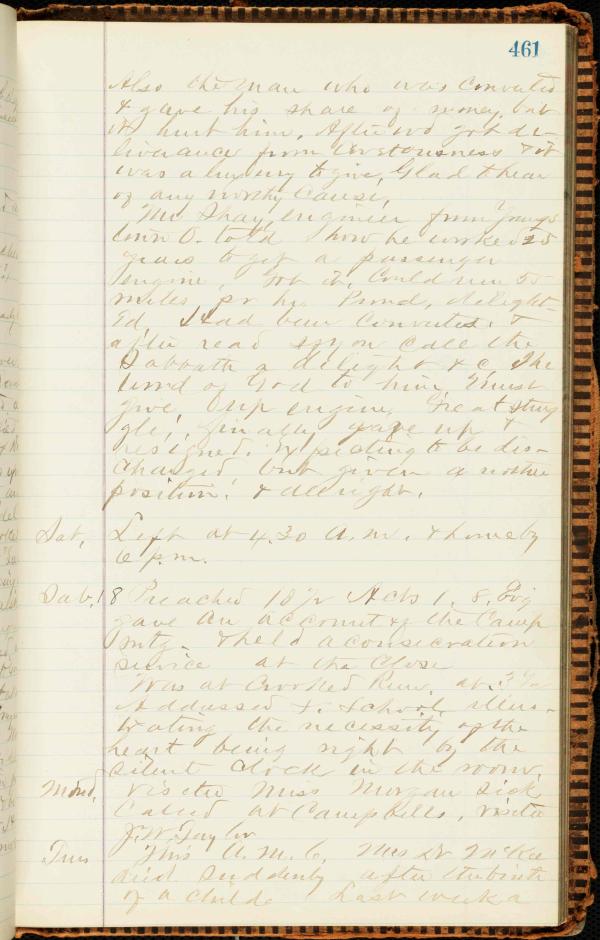 461
Also the man who was converted
& gave his share of money, but
it hurt him. Afterwd got de-
liverance from covetousness & it
was a luxury to give, Glad to hear
of any worthy cause,
Mr Shay, engineer from Youngs
town O. told how he worked 25
years to get a passenger
engine, Got it, Could run 55
miles pr hr Proud, delight-
ed, Had been converted. &
after read if you call the
Sabbath a delight & c. The
word of God to him, I must
give up engine, Great strug
gle, finally gave up &
resigned. Expecting to be dis-
charged but given another
position! & all right.
Sat, Left at 4.30 A.m. & home by
6 p.m.
Sab. 18 Preached 10 Acts 1. 8. Evg
gave an account of the Camp
mtg. & held a consecration
service at the close
Was at Crooked Run, at 3
Addressed S. School illus-
trating the necessity of the
heart being right by the
silent clock in the room,
Mond, visited Miss Morgan sick
Called at Campbells, visited
J. W. Taylor
Tues This A.M. 6, Mrs Dr McKee
died suddenly after the birth
of a child. Last week a